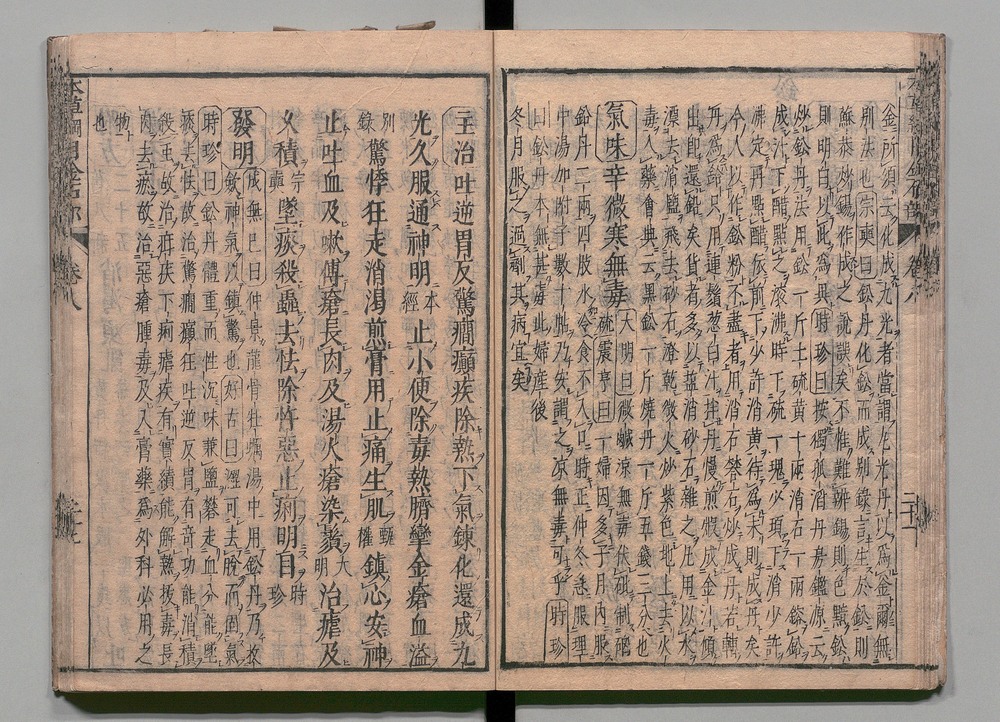 金二所須云化成九光者當謂九光丹以為金爾無
別法也宗奭曰鉛丹化鉛而成別錄言生於鉛則
蘇恭炒錫作成之說誤矣不惟難辨錫則色黯鉛
則明白以此為異時珍曰按獨孤滔丹房鑑源云
炒鉛丹法用鉛一斤土硫黃十兩消石一兩鎔鉛
成汁下醋點之滾沸時下硫一塊少頃下消少許
沸定再點醋依前下少許消黃待為末則成丹矣
今人以作鉛粉不盡者用消石礬石炒成丹若轉
丹為鉛只用連鬚葱白汁拌丹慢煎煅成金汁傾
出即還鉛矣貨者多以鹽消砂石雜之凡用以水
漂去消鹽飛去砂石澄乾微火炒紫色地上去火
毒入藥會典云黑鉛一斤燒丹一斤五錢三分也
氣味辛微寒無毒大明曰微鹹涼無毒伏砒制硇
硫震亨曰一婦因多子月內服
鉛丹二兩四肢冰冷食不入口時正仲冬急服理
中湯加附子數十帖乃安謂之涼無毒可乎時珍
曰鉛丹本無甚毒此婦産後
冬月服之過劑其病宜矣
主治吐逆胃反驚癇癲疾除熱下氣鍊化還成九
光久服通神明本經止小便除毒熱臍攣金瘡血溢
別錄驚悸狂走消渴煎膏用止痛生肌甄權鎮心安神
止吐血及嗽傅瘡長肉及湯火瘡染鬚大明治瘧及
久積宗奭墜痰殺蟲去怯除忤惡止痢明目時珍
發明成無已曰仲景龍骨牡蠣湯中用鉛丹乃收
斂神氣以鎮驚也好古曰澀可去脫而固氣
時珍曰鉛丹體重而性沉味兼鹽礬走血分能墜
痰去怯故治驚癇癲狂吐逆反胃有奇功能消積
殺蟲故治疳疾下痢瘧疾有實績能解熱拔毒長
肉去瘀故治惡瘡腫毒及入膏藥為外科必用之
物也